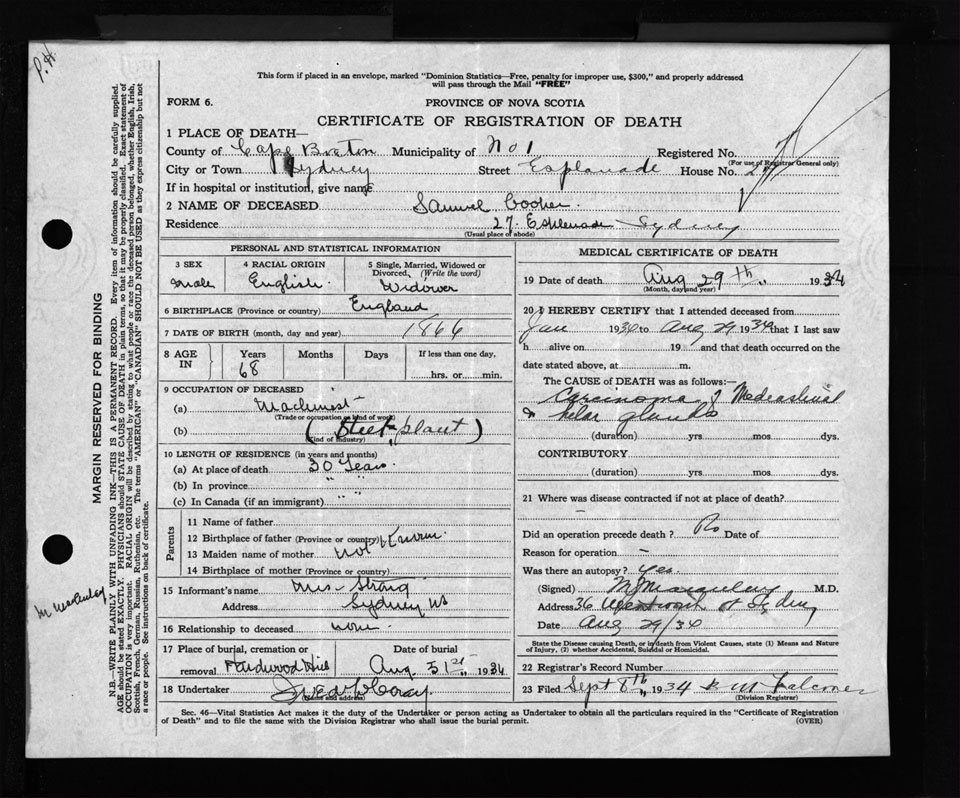 P.H.
This form if placed in an envelope, marked "Dominion Statistics—Free, penalty for improper use, $300," and properly addressed
will pass through the Mail "FREE"
FORM 6.
PROVINCE OF NOVA SCOTIA
CERTIFICATE OF REGISTRATION OF DEATH
1 PLACE OF DEATH—
County of Cape Breton Municipality of No 1 Registered No.
(For use of Registrar General only)
City or Town Sydney Street Esplanade House No. 27
If in hospital or institution, give name
2 NAME OF DECEASED Samuel Cooher
Residence 27 Esplanade Sydney
(Usual place of abode)
PERSONAL AND STATISTICAL INFORMATION
3 SEX
male
4 RACIAL ORIGIN
English
5 Single, Married, Widowed or
Divorced, (Write the word)
Widower
6 BIRTHPLACE (Province or country) England
7 DATE OF BIRTH (month, day and year) 1866
8 AGE IN
Years Months Days If less than one day,
68 hrs. or min.
9 OCCUPATION OF DECEASED
(a) Machinist
(Trade or occupation or kind of work)
(b) (Steel plant)
(Kind of industry)
10 LENGTH OF RESIDENCE (in years and months)
(a) At place of death 30 Years
(b) In province " "
(c) In Canada (if an immigrant) " "
Parents
11 Name of father
12 Birthplace of father (Province or country)
13 Maiden name of mother not known
14 Birthplace of mother (Province or country)
15 Informant's name Mrs Strong
Address Sydney NS
16 Relationship to deceased none
17 Place of burial, cremation or removal Hardwood Hill
Date of burial
Aug. 31st 1934
18 Undertaker
Name and address
MEDICAL CERTIFICATE OF DEATH
19 Date of death Aug 29th 1934
(Month, day and year)
20 I HEREBY CERTIFY that I attended deceased from
Jan 1934 to Aug 29 1934 that I last saw
h alive on 19 and that death occurred on the
date stated above, at m.
The CAUSE of DEATH was as follows:—
Carcinoma of Mediastinal
& hilar glands
(duration) yrs. mos. dys.
CONTRIBUTORY
(duration) yrs. mos. dys.
21 Where was disease contracted if not at place of death?
Did an operation precede death? No Date of
Reason for operation —
Was there an autopsy? Yes.
(Signed) M.D.
Address 36 Wentworth St Sydney
Date Aug 29/34
State the Disease causing Death, or in death from Violent Causes, state (1) Means and Nature
of Injury, (2) whether Accidental, Suicidal or Homicidal.
22 Registrar's Record Number
23 Filed Sept 8th, 1934 K M Falconer
(Division Registrar)
Sec. 46—Vital Statistics Act makes it the duty of the Undertaker or person acting as Undertaker to obtain all the particulars required in the "Certificate of Registration
of Death" and to file the same with the Division Registrar who shall issue the burial permit.
(OVER)
MARGIN RESERVED FOR BINDING
N.B.—WRITE PLAINLY, WITH UNFADING INK—THIS IS A PERMANENT RECORD. Every item of information should be carefully supplied.
AGE should be stated EXACTLY. PHYSICIANS should STATE CAUSE OF DEATH in plain terms, so that it may be properly classified. Exact statement of
OCCUPATION is very important. RACIAL ORIGIN will be described by stating to what people or race the deceased person belonged, whether English, Irish,
Scottish, French, German, Russian, Ruthenian, etc. The terms "AMERICAN" or "CANADIAN" SHOULD NOT BE USED as they express citizenship but not
a race or people. See instructions on back of certificate.